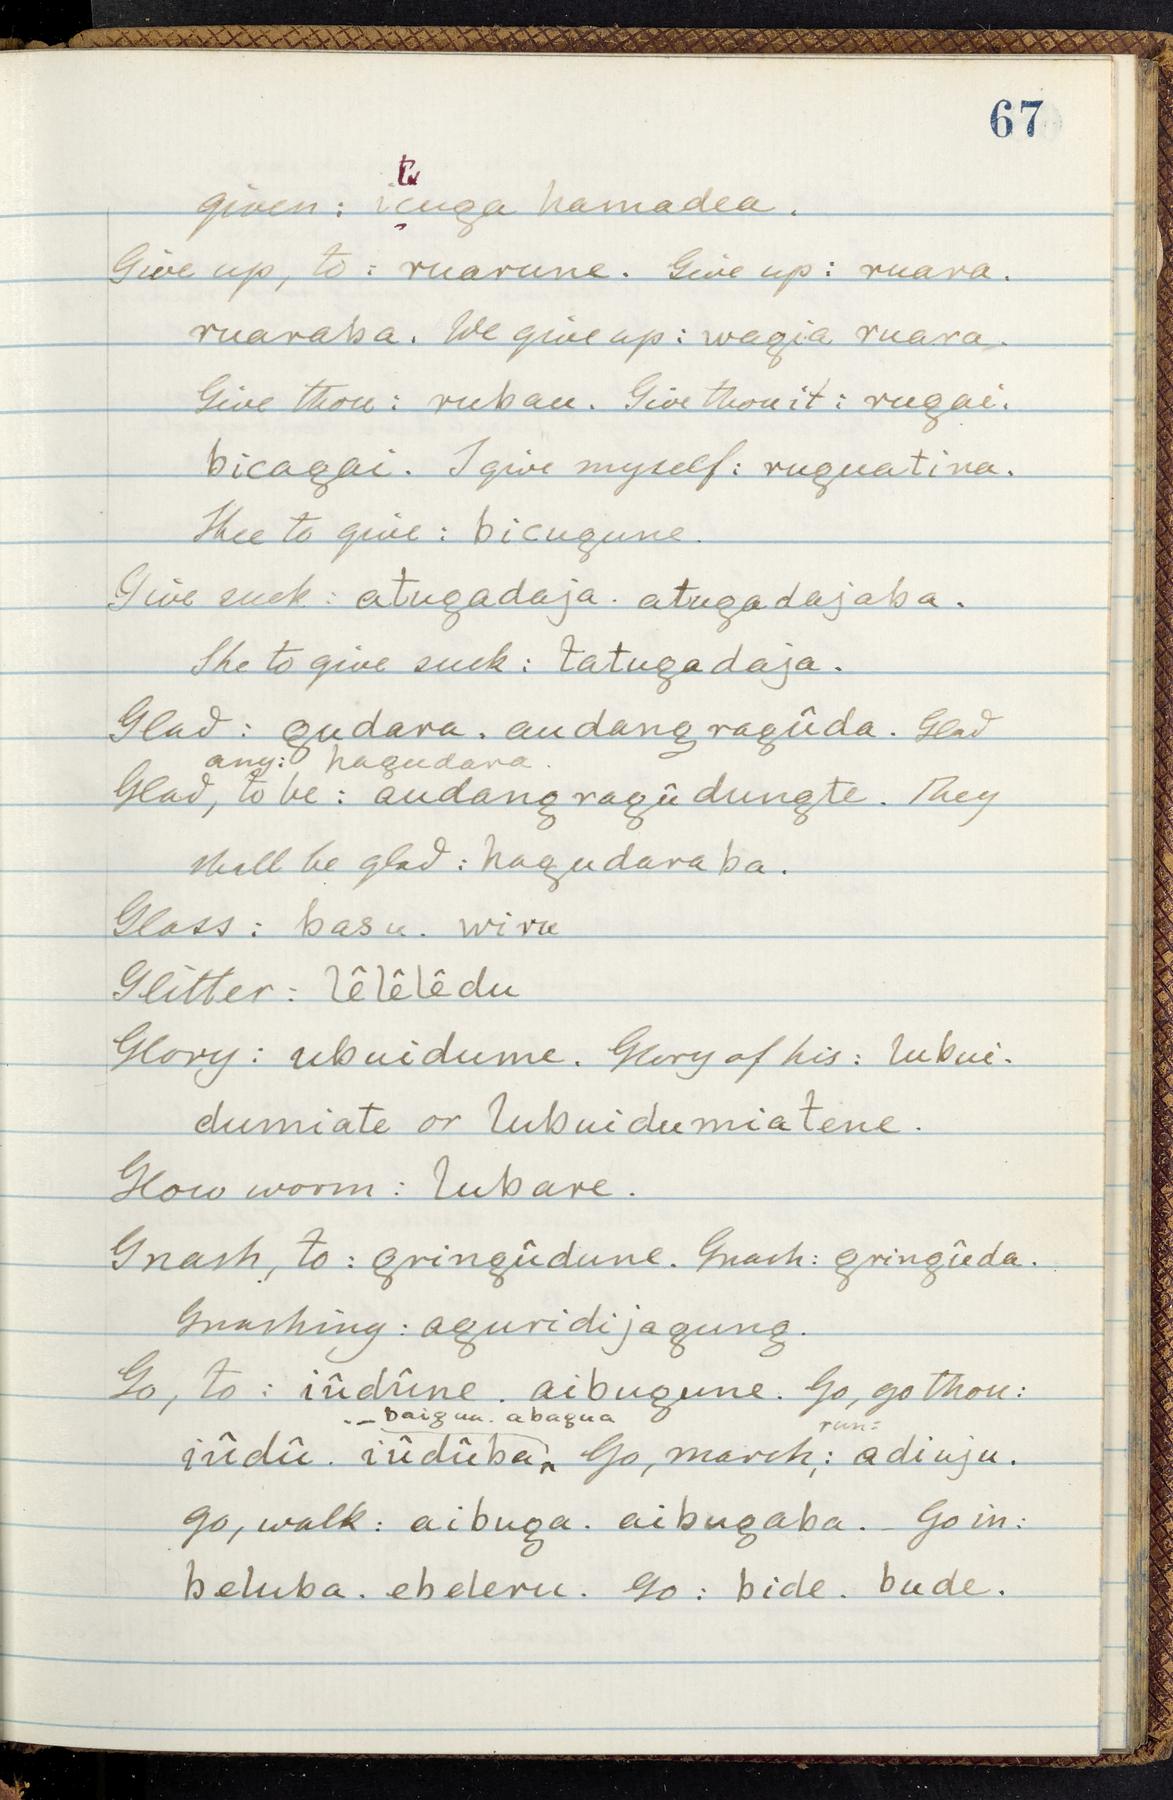 67
tu
given: içuga hamadea.
Give up, to: ruarune. Give up: ruara.
ruaraba. We give up: wagia ruara.
Give thou: rubau. Give thou it: rugai.
bicagai. I give myself: ruguatina.
Thee to give: bicugune.
Give suck: atugadaja. atugadajaba.
She to give suck: tatugadaja.
Glad: gudara. audangragûda. Glad
any: hagudara.
Glad, to be: audangragûdungte. They
shall be glad: hagudaraba.
Glass: basu. wiru
Glitter: lêlêlêdu
Glory: ubuidume. Glory of his: lubui-
dumiate or lubuidumiatene.
Glow worm: lubare.
Gnash, to: gringûdune. Gnash: gringûda.
Gnashing: aguridijagung.
Go, to: iûdûne. aibugune. Go, go thou:
baigua. abagua run:
iûdû. iûdûba. Go, march,: adiuju.
go, walk: aibuga. aibugaba. Go in:
beluba. ebeleru. Go: bide. bude.